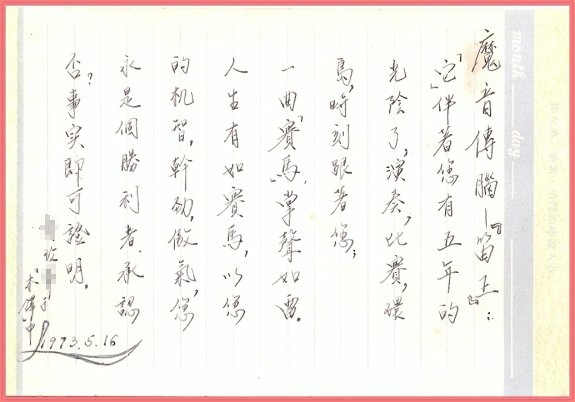 魔音傳腦—『笛王』:
「它」伴著您有五年的
光陰了,演奏,比賽,環
島,時刻跟著您;
一曲「賽馬」掌聲如雷。
人生有如賽馬,以您
的机智,幹勁,傲氣,您
永是個勝利者.承認
否?事實即可證明。
于
「木鐸中」
1973.5.16
menik day